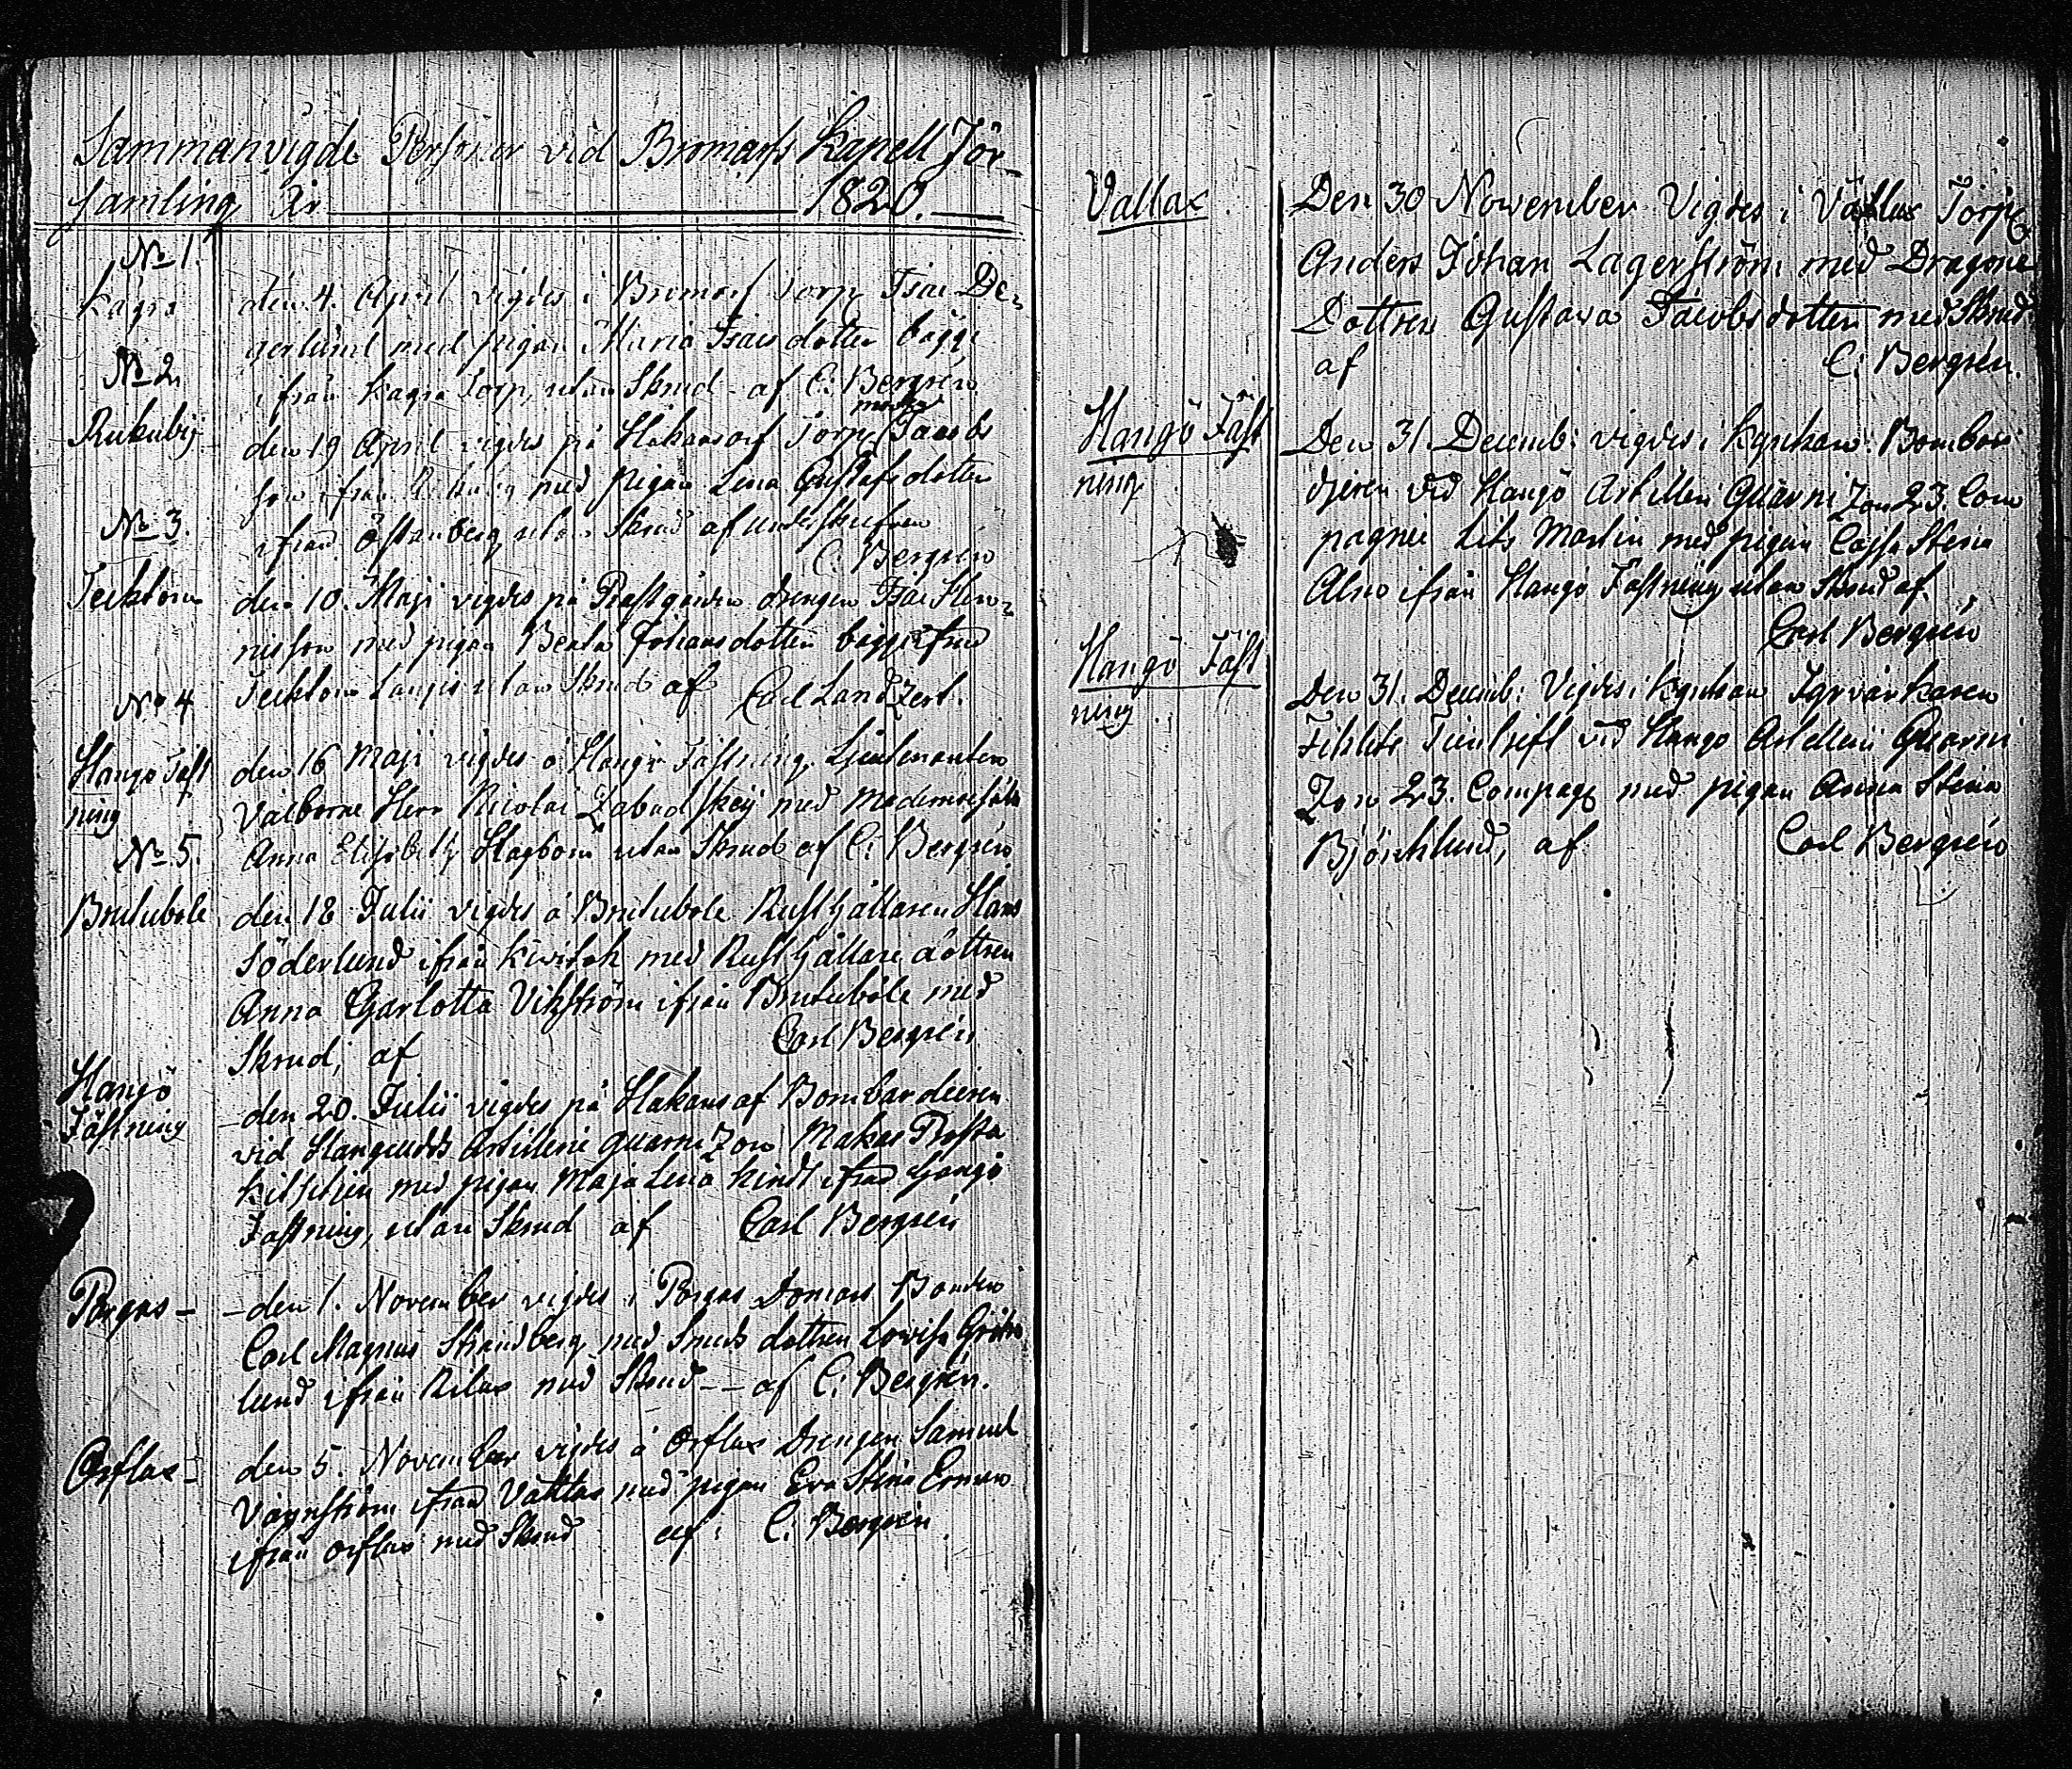 Sammanvigde Personer vid Bromarfs Kapell För-
samling År 1820.
No 1.
Kagra
den 4. April vigdes i Bromarf Torp. Isac De-
gerlund med pigan Maria Isacs dotter bägge
ifrån Kagra Torp, utan Skrud - af C: Bergrén
No 2
Rukubÿ
den 19 April vigdes på Håkansarf Torp. Jacobs
son ifrån med Pigan Lena Gustafs dotter
ifrån Östanberg utan Skrud af underskrefven
C: Bergrén
No 3.
Tecktom
den 10. Maji vigdes på Prästgården drengen Isac Hin-
nisson med pigan Beata Johansdotter bägge ifrån
Tecktom utan Skrud af Carl Landzert.
No 4
Hangö Fäst
ning
den 16 Maji vigdes å Hangö Fästning Lieutnanten
Välborne Herr Nicolai Zabudskeij med Mademoiselle
Anna Elisabeth Hagbom utan Skrud af C: Bergrén
No 5.
Brutubole
den 18 Julii vigdes å Brutubole Rusthållaren Hans
Söderlund ifrån med Rusthållare dottren
Anna Charlotta Vikström ifrån Brutubole med
Skrud, af Carl Bergrén
Hangö
Fästning
- den 20. Julii vigdes på Håkansaf Bombardieren
vid Hangöudds Artillerie Guarnizon Makar
med pigan Maja Lena Kindt ifrån Hangö
Fästning, utan Skrud af Carl Bergrén
Pårgas -
- den 1. November vigdes i Pårgas Domars Bonden
Carl Magnus Strandberg med Smeds dottren Lovisa Grön
lund ifrån Rilax med Skrud -- af C: Bergrén.
Orflax -
den 5. November vigdes å Orflax Drengen Samuel
ifrån Vättlax med pigan Eva Stina Ernren
ifrån Orflax med Skrud af: C: Bergrén
Vallax
Den 30 November Vigdes i Torp.
Anders Johan Lagerström med Dragone
Dottren Gustava Jacobs dotter med Skrud
af C: Bergrén.
Hangö Fäst
ning
Den 31. Decemb: vigdes i kyrkan Bombar
djeren vid Hangö Artilleri Guarnizon 23. Com
pagnie Martin med pigan Cajsa Stina
Alno ifrån Hangö Fästning utan Skrud af
Carl Bergrén
Hangö Fäst
ning
Den 31. Decemb: Vigdes i kyrkan
vid Hangö Artilleri Guarni
Zon 23. Compagn med pigan Anna Stina
Björklund, af Carl Bergrén